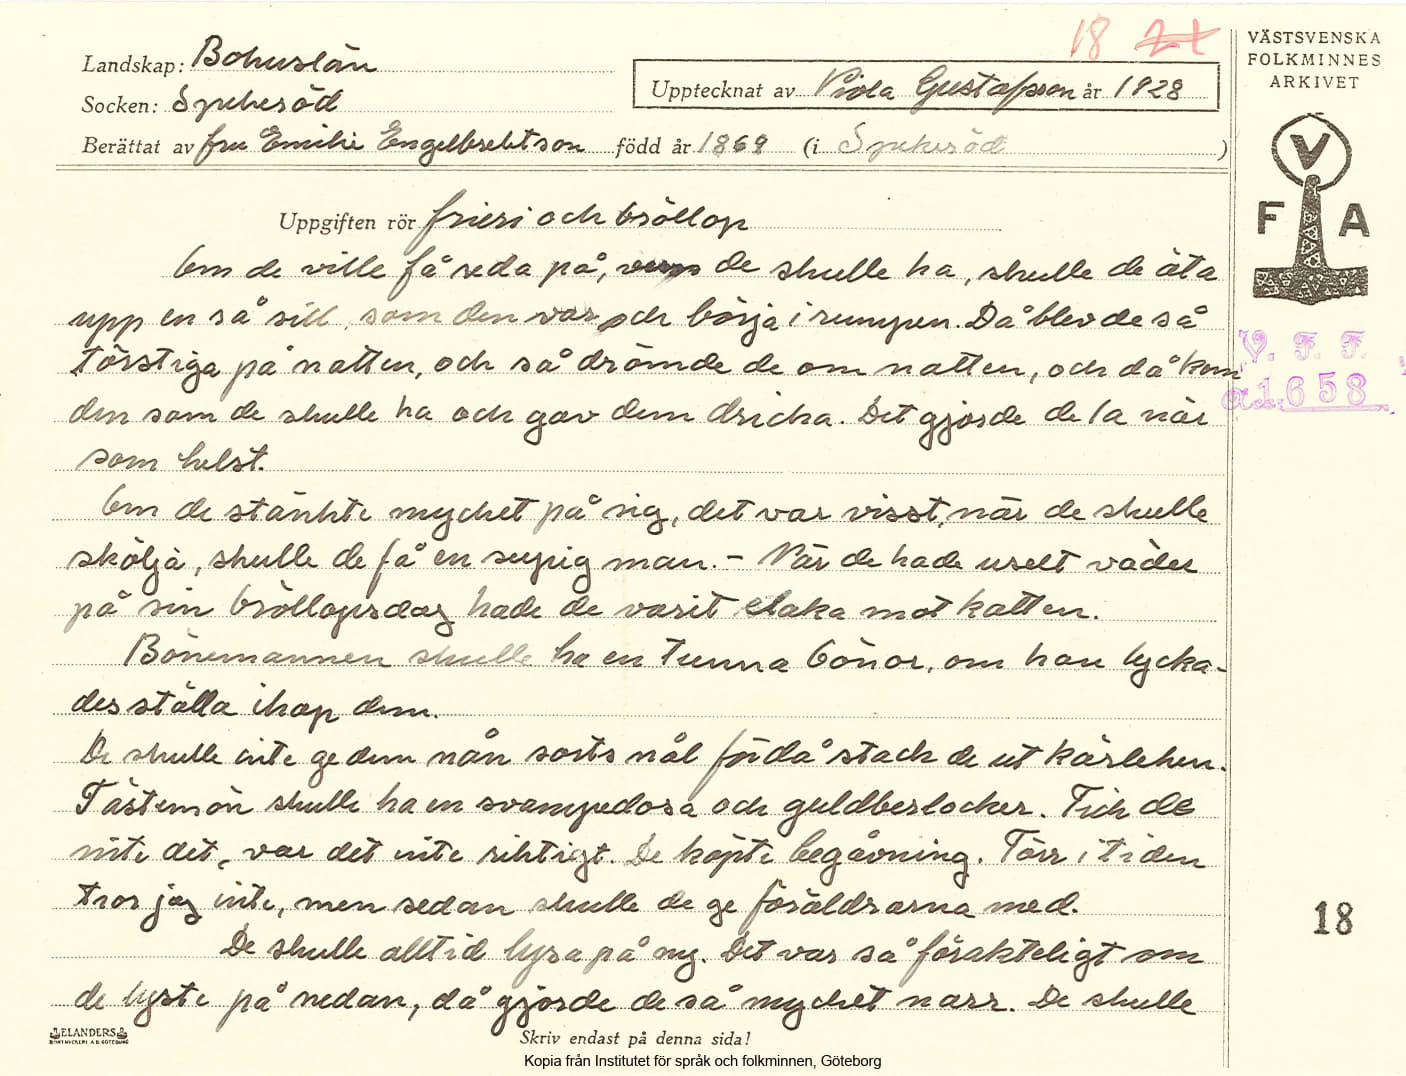 18 21
VÄSTSVENSKA
FOLKMINNES
ARKIVET
Landskap: Bohuslän
Upptecknat av Viola Gustafsson år 1928
Socken: Spekeröd
Berättat av fru Emilie Engelbrektson född år 1869 (i Spekeröd )
V
F A
Uppgiften rör frieri och bröllop
Om de ville få reda på, vem de skulle ha, skulle de äta
upp en så sill, som den var och börja i rumpen. Då blev de så
törstiga på natten, och så drömde de om natten, och då kom
den som de skulle ha och gav dem dricka. Det gjorde de la när
som helst.
Om de stänkte mycket på sig, det var visst, när de skulle
skölja, skulle de få en supig man. - När de hade uselt väder
på sin bröllopsdag hade de varit elaka mot katten.
Bönemannen skulle ha en tunna bönor, om han lycka-
des ställa ihop dem.
De skulle inte ge dem nån sorts nål för då stack de ut kärleken.
Fästemön skulle ha en svampedosa och guldberlocker. Fick de
inte det, var det inte riktigt. De köpte begåvning. Förr i tiden
tror jag inte, men sedan skulle de ge föräldrarna med.
De skulle alltid lysa på ny. Det var så förakteligt om
de lyste på nedan, då gjorde de så mycket narr. De skulle
V. F. F.
a1658
18
ELANDERS
BOKTRYCKERI A.B. GÖTEBORG
Skriv endast på denna sida!
Kopia från Institutet för språk och folkminnen, Göteborg